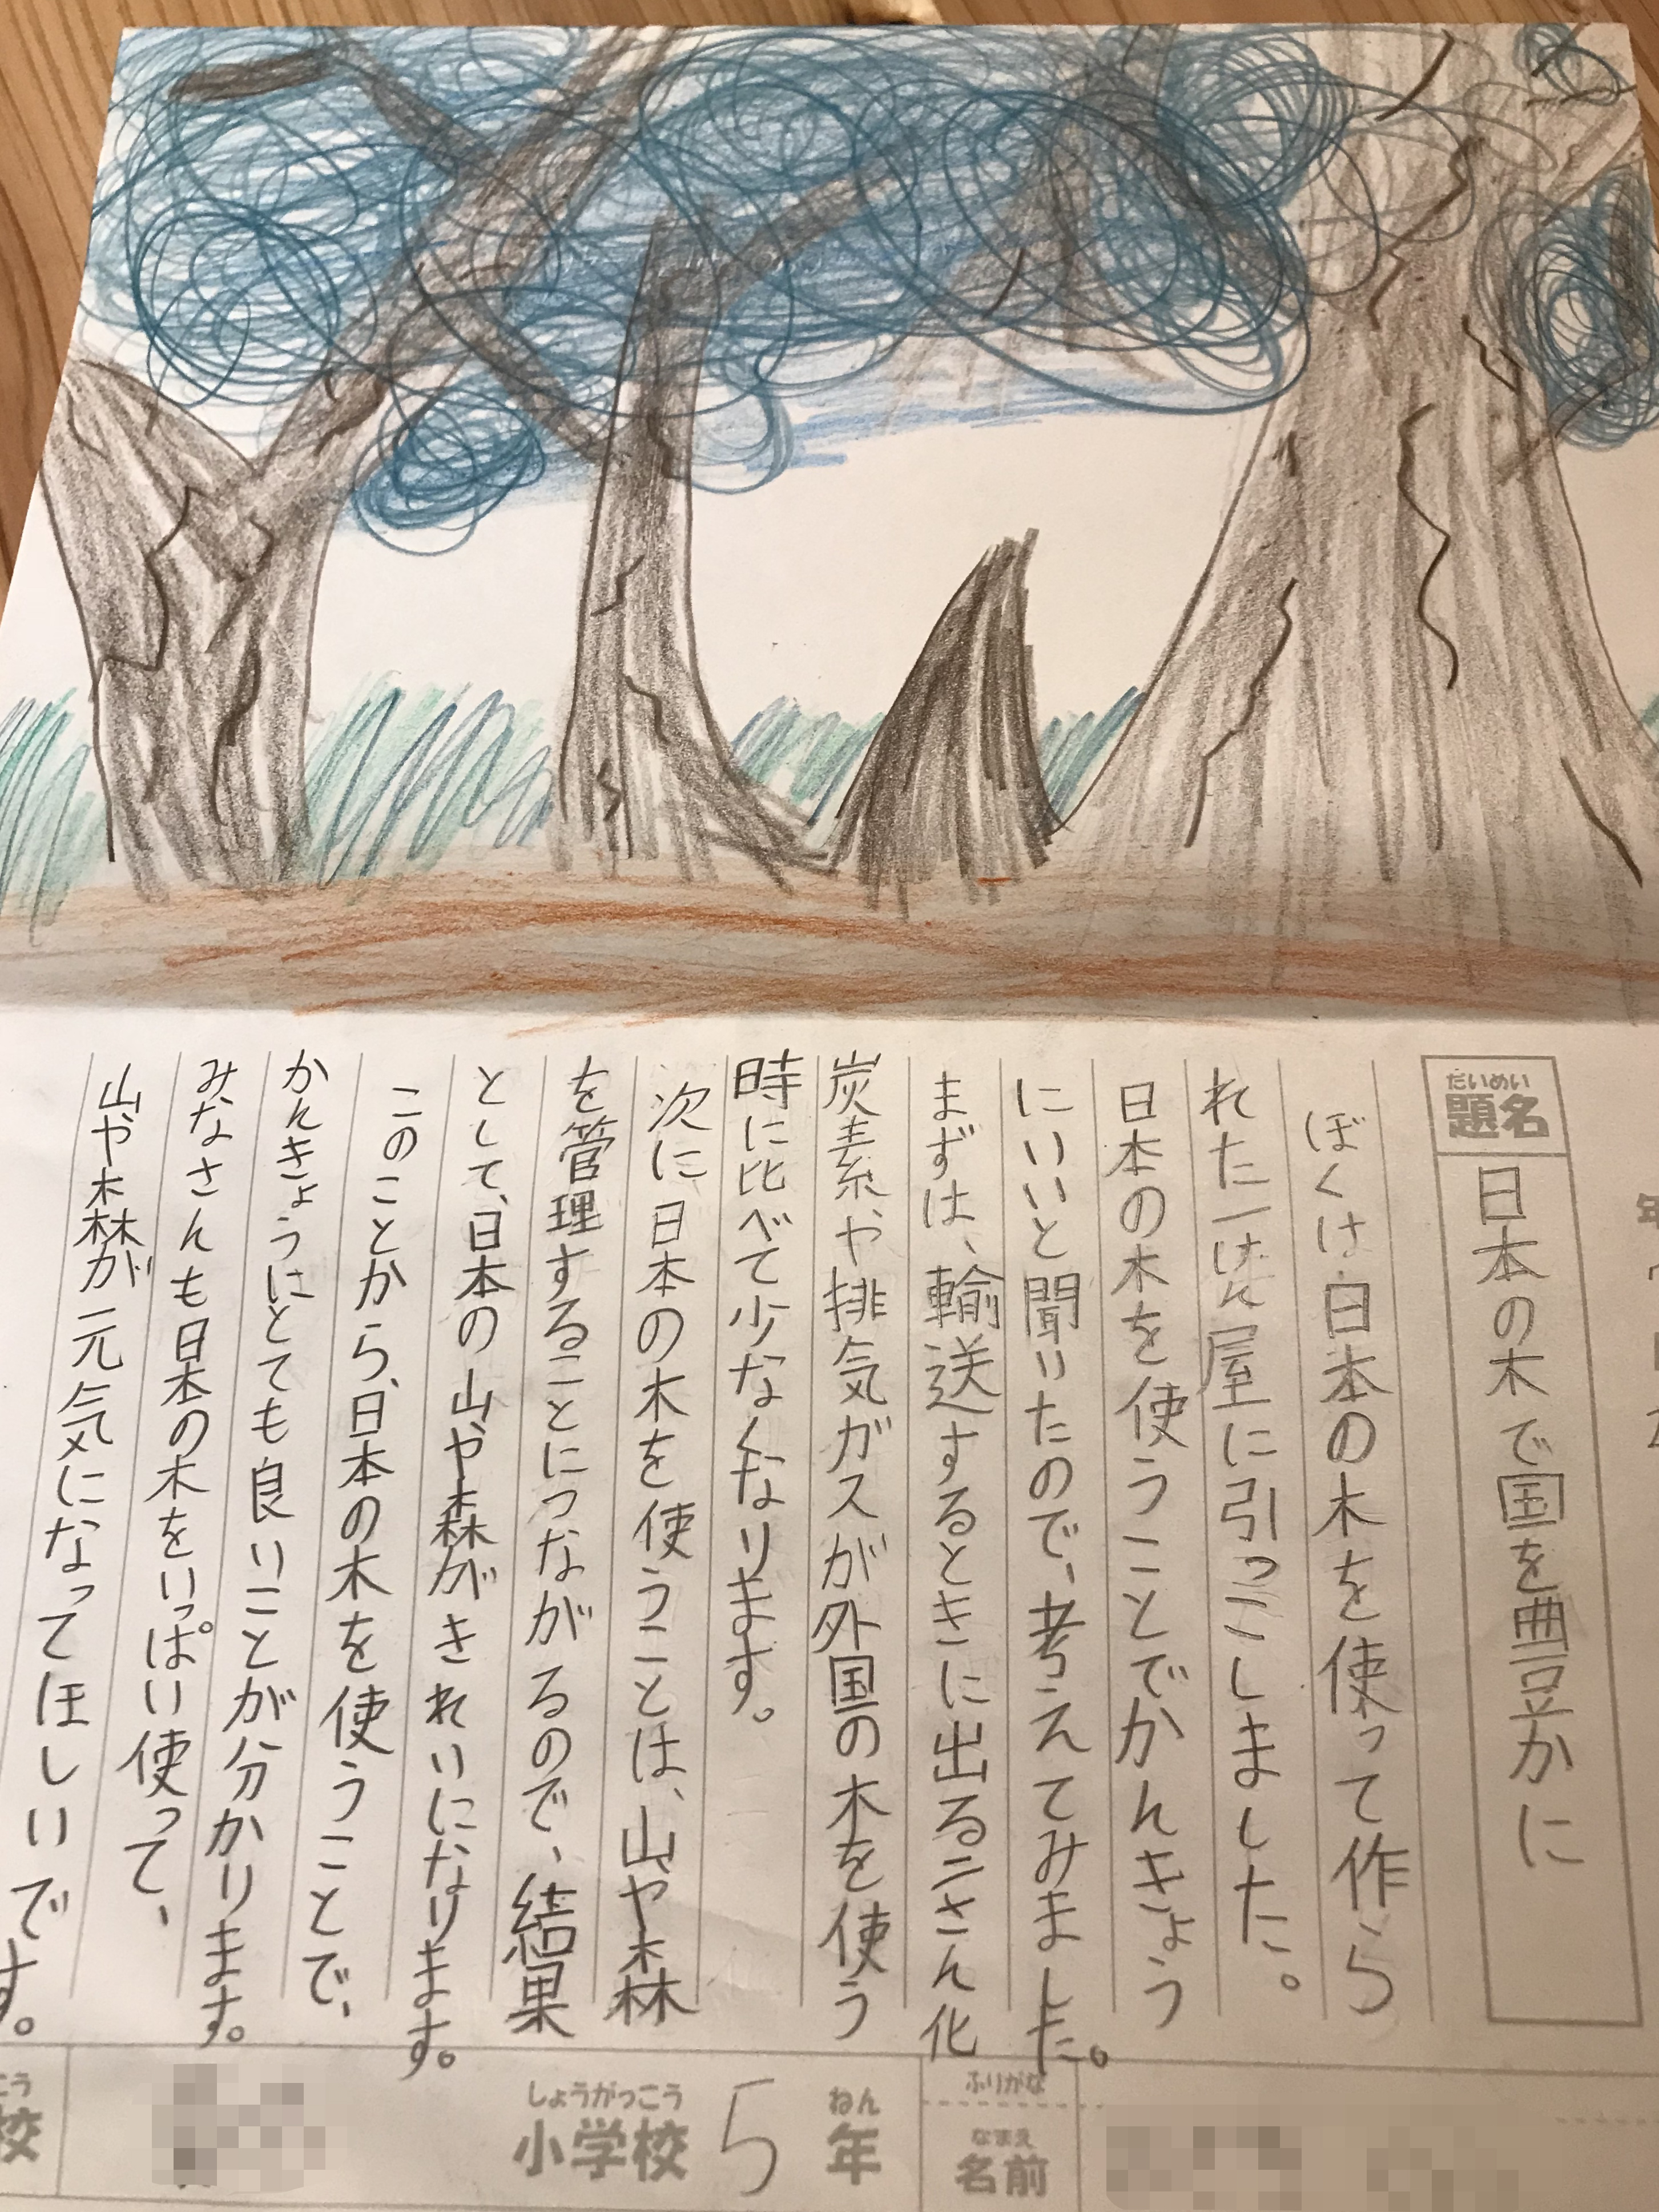 だいめい
題名
日本の木で国を豊かに
ぼくは日本の木を使って作ら
れた一けん屋に引っこしました。
日本の木を使うことでかんきょう
にいいと聞いたので、考えてみました。
まずは、輸送するときに出る二さん化
炭素や排気ガスが外国の木を使う
時に比べて少なくなります。
次に日本の木を使うことは、山や森
を管理することにつながるので、結果
として、日本の山や森がきれいになります。
このことから、日本の木を使うことで、
かんきょうにとても良いことが分かります。
みなさんも日本の木をいっぱい使って、
山や森が元気になってほしいです。
こう
校
しょうがっこう
小学校
5
ねん
年
ふりがな
なまえ
名前